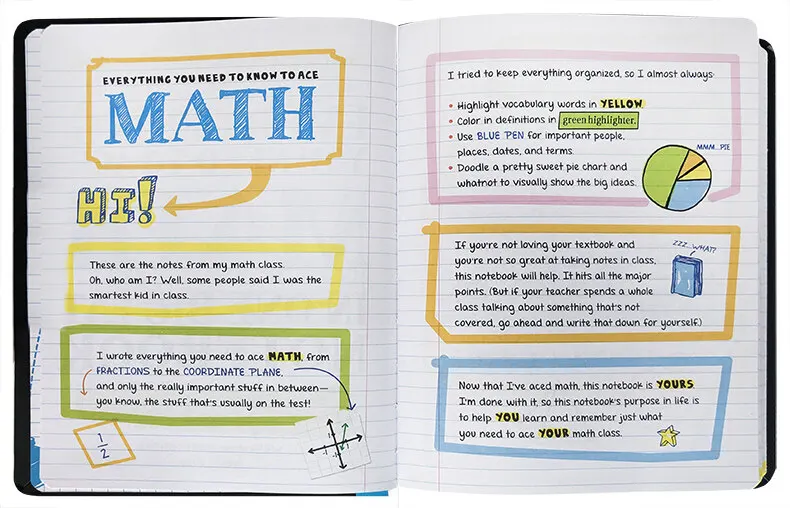 EVERYTHING YOU NEED TO KNOW TO ACE
MATH
HI!
These are the notes from my math class.
Oh, who am I? Well, some people said I was the
smartest kid in class.
I wrote everything you need to ace MATH, from
FRACTIONS to the COORDINATE PLANE,
and only the really important stuff in between—
you know, the stuff that's usually on the test!
1
2
I tried to keep everything organized, so I almost always:
• Highlight vocabulary words in YELLOW.
• Color in definitions in green highlighter.
• Use BLUE PEN for important people,
places, dates, and terms.
• Doodle a pretty sweet pie chart and
whatnot to visually show the big ideas.
MMM...PIE
If you're not loving your textbook and
you're not so great at taking notes in class,
this notebook will help. It hits all the major
points. (But if your teacher spends a whole
class talking about something that's not
covered, go ahead and write that down for yourself.)
ZZZ...WHAT?
Now that I've aced math, this notebook is YOURS.
I'm done with it, so this notebook's purpose in life is
to help YOU learn and remember just what
you need to ace YOUR math class.